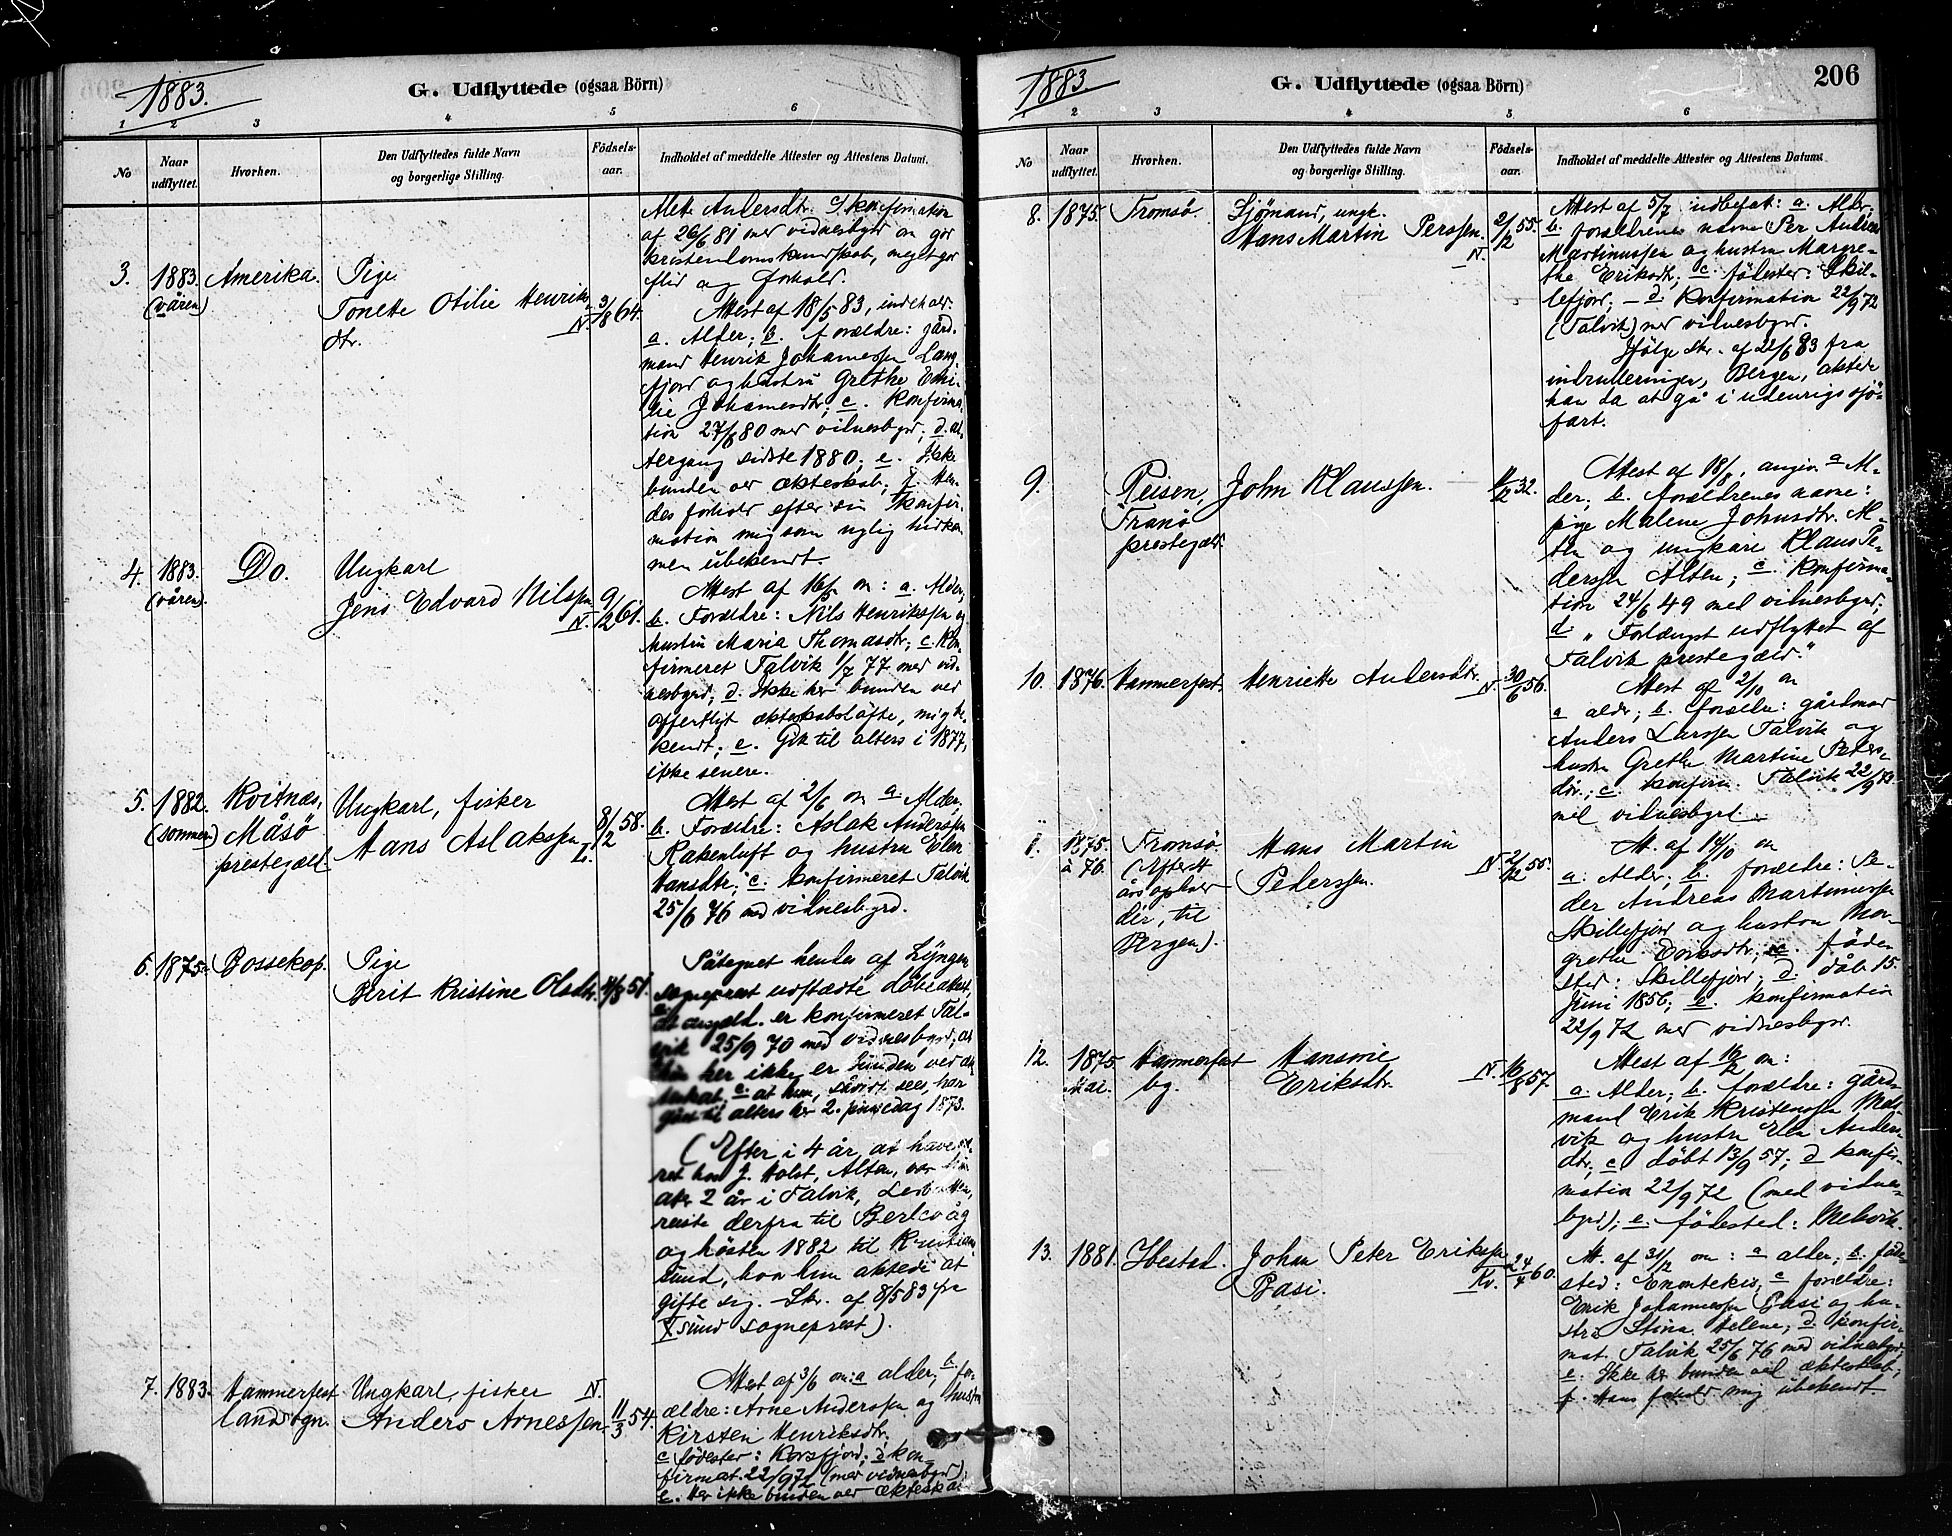 1883.
G. Udflyttede (ogsaa Börn)
1 2 3 4 5 6
No
Naar udflyttet.
Hvorhen.
Den Udflyttedes fulde Navn
og borgerlige Stilling.
Födsels-
aar.
Indholdet af meddelte Attester og Attestens Datum.
Mette Andersdtr. konfirmation
af 26/6 81 med vidnesbyrd om god
kristendomskundskab, meget god
flid og forhold.
3. 1883. (våren) Amerika. Pige
Tonette Otilie Henriks-
dtr. N. 3/8 64.
Attest af 18/5 83, indehold.
a. Alder; b. forældre: gård-
mand Henrik Johannessen Lang-
fjord og hustru Grethe Emi-
lie Johannesdtr; c. konfirma-
tion 27/6 80 med vidnesbyrd; d. al-
tergang sidste 1880; e. Ikke
bunden ved ækteskab; f. Hen-
des forhold efter sin konfir-
mation mig som nylig hidkom-
men ubekendt.
4. 1883. (våren). Do. Ungkarl
Jens Edvard Nilssen N. 9/12 61.
Attest af 16/5 om: a. Alder,
b. Forældre: Nils Henrikssen og
hustru Maria Thomasdtr; c. Kon-
firmeret Talvik 1/7 77 med vid-
nesbyrd; d. Ikke her bunden ved
offentligt ækteskabsløfte, mig be-
kendt; e. Gik til alters i 1877,
ikke senere.
5. 1882. (sommer) Kvitnæs, Måsö prestegæld. Ungkarl, fisker
Hans Aslakssen L. 8/2 58.
Attest af 2/6 om a. Alder,
b. Forældre: Aslak Anderssen
Rakenluft og hustru Elen
Hansdtr; c. konfirmeret Talvik
25/6 76 med vidnesbyrd.
6. 1875. Bossekop. Pige
Berit Kristine Olsdtr. 51.
Påtegnet hendes af Lyngen
sogneprest udstædte dåbsattest,
er konfirmeret Tal-
vik 25/9 70 med vidnesbyrd;
her ikke er bunden ved
c. at hun, såvidt sees, har
gået til alters her 2. pinsedag 1873.
(Efter i 4 år at have væ-
ret hos J. Holst, Alten, var hun
2 år i Talvik,
reiste derfra til Berlevåg
og hösten 1882 til Kristian-
sund, hvor hun aktede at
gifte sig. – Skr. af 8/5 83 fra
Xsund sogneprest).
7. 1883. Hammerfest landsogn. Ungkarl, fisker N.
Anders Arnessen 11/3 54.
Attest af 3/6 om: a alder; b. for-
ældre: Arne Anderssen og hustru
Kirsten Henriksdtr.
c fødested: Korsfjord; d kon-
firmat. 22/9 72 (med vidnesbyrd)
e. Her ikke bunden ved ækteskab
1883.
G. Udflyttede (ogsaa Börn)
206
1 2 3 4 5 6
No
Naar udflyttet.
Hvorhen.
Den Udflyttedes fulde Navn
og borgerlige Stilling.
Födsels-
aar.
Indholdet af meddelte Attester og Attestens Datum.
8. 1875. Tromsö. Sjömand, ungk.
Hans Martin Perssen. N. 2/12 55.
Attest af 5/7 indbefat: a. Alder,
b. forældrenes navne Per Andreas
Martinussen og hustru Margre-
the Eriksdtr, c. födested: Skil-
lefjord; – d. Konfirmation 22/9 72
(Talvik) med vidnesbyrd.
Ifölge skr. af 22/6 83 fra
indrulleringen, Bergen, aktede
han da at gå i udenrigs sjö-
fart.
9. Reisen, Tranö prestegæld. John Klaussen. 32.
Attest af 18/8, angiv. a Al-
der; b. forældrenes navne:
pige Malene Johnsdtr. Al-
ten og ungkarl Klaus Pe-
derssen Alten; c. konfirma-
tion 24/6 49 med vidnesbyrd;
d. „Forlængst udflyttet af
Talvik prestegæld."
10. 1876. Hammerfest. Henriette Andersdtr. N. 30/6 56.
Attest af 2/10 om
a alder; b. forældre: gårdmand
Anders Larssen Talvik og
hustru Grethe Martine Peders-
dtr.; c. konfirm. Talvik 22/9 72
med vidnesbyrd.
11. 1875. à 76. Tromsö (Efter et års ophold der, til Bergen). Hans Martin
Pederssen. N. 2/12 55.
At. af 14/10 om
a. Alder; b. forældre: Pe-
der Andreas Martinussen
Skillefjord og hustru Mar-
grethe Eriksdtr; c. föde-
sted: Skillefjord; d. dåb 15.
Juni 1856; e. konfirmation
22/9 72 med vidnesbyrd.
12. 1875. Mai. Hammerfest by. Hansine
Eriksdtr. N. 16/8 57.
Attest af 16/12 om:
a. Alder; b. forældre: gård-
mand Erik Kristenssen Mel-
vik og hustru Elen Anders-
dtr; c. döbt 13/9 57; d konfir-
mation 22/9 72 (med vidnes-
byrd); e. födested: Melsvik.
13. 1881. Ibestad. Johan Peter Erikssen
Pasi. Kv. 24/4 60.
At. af 31/12 om: a alder; b. föde-
sted: Enontekis; c forældre:
Erik Johannessen Pasi og hu-
stru Stina Helene; d. konfir-
mat. Talvik 25/6 76 med vidnesbyrd;
e. Ikke her bunden ved ækteskab;
f. Hans forhold mig ubekendt